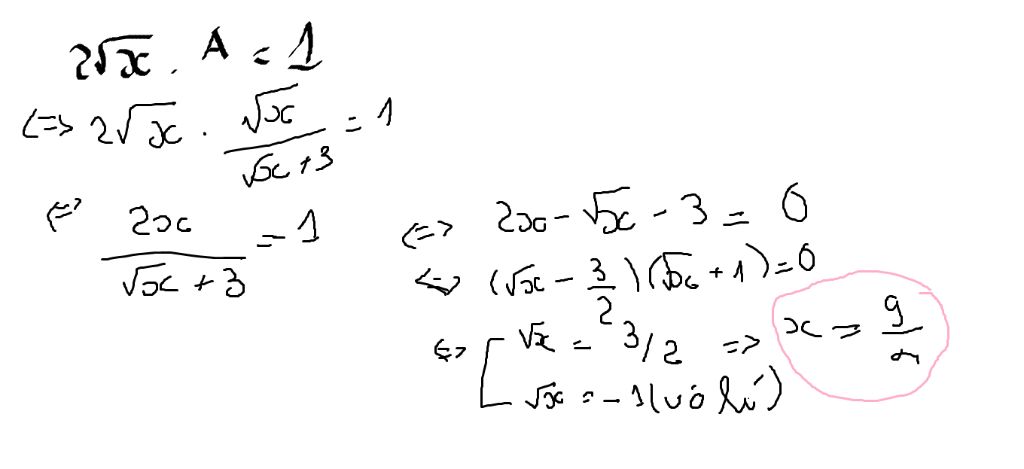 2√x . A = 1
<=> 2√x . √x/(√x + 3) = 1
<=> 2x/(√x + 3) = 1
<=> 2x - √x - 3 = 0
<=> (√x - 3/2)(√x + 1) = 0
<=> [ √x = 3/2 => x = 9/
√x = -1 (vô lí)